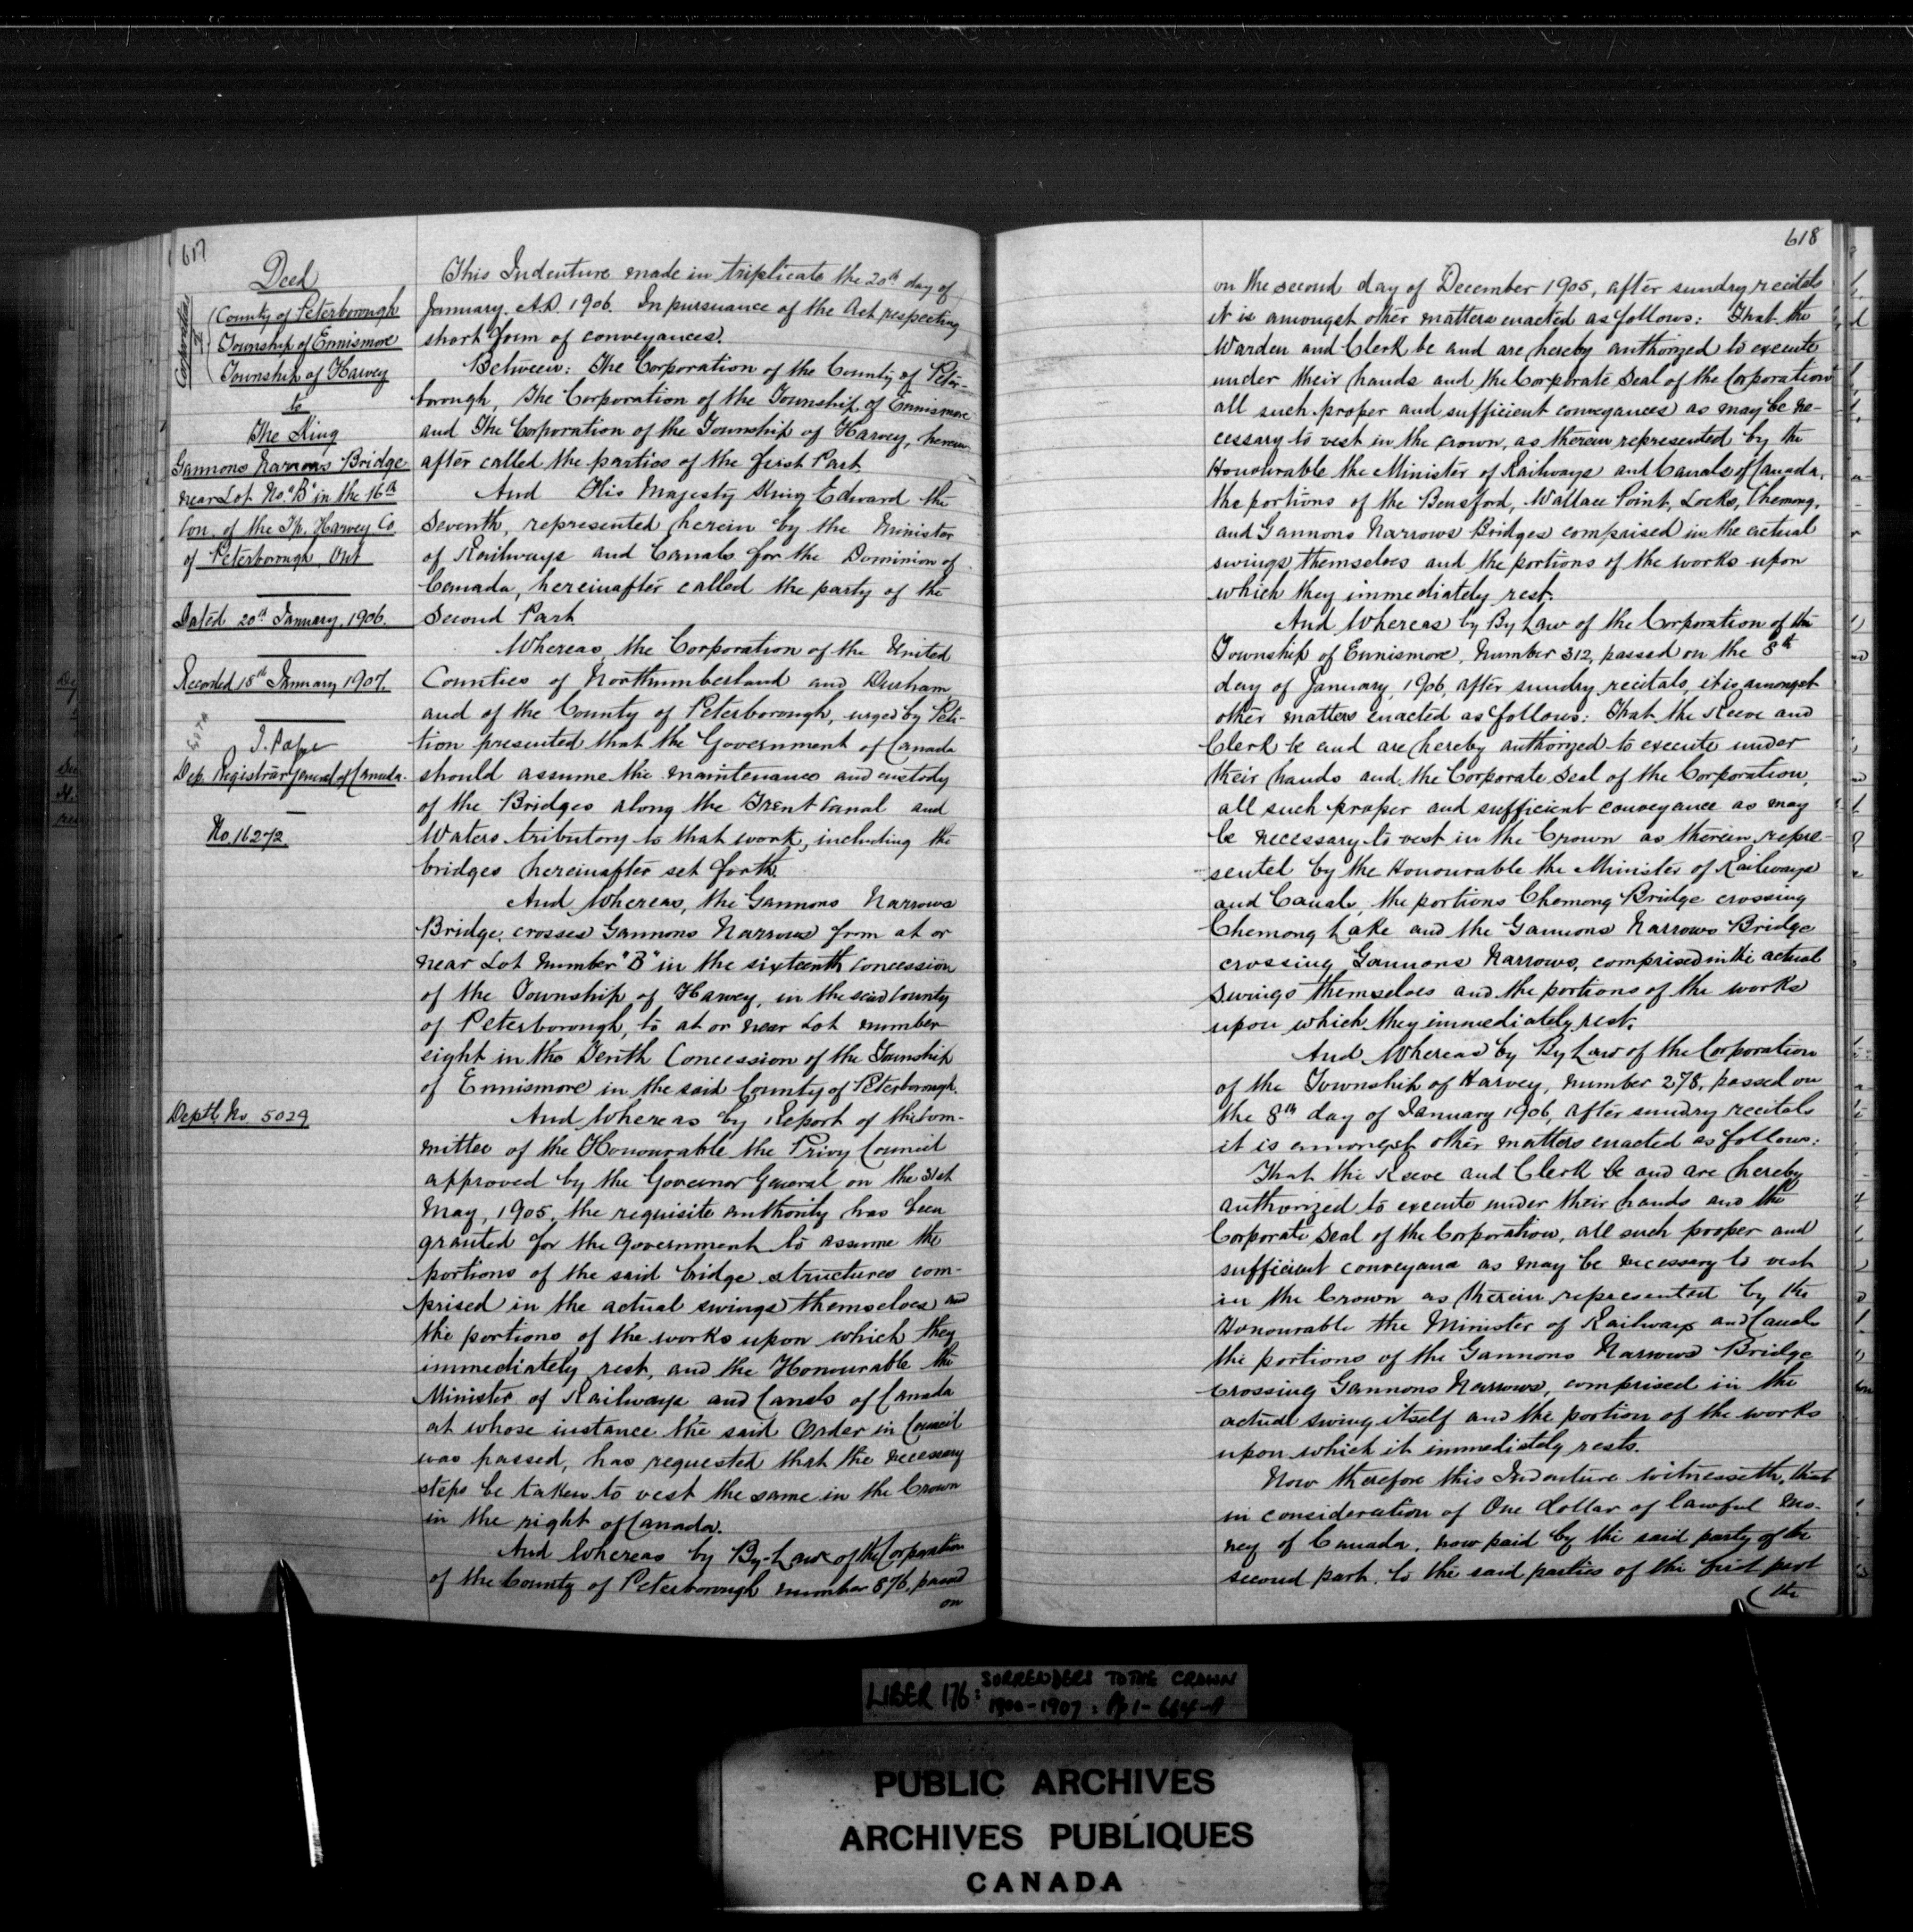 617
Deed
Corporation of
County of Peterborough
Township of Ennismore
Township of Harvey
to
The King
Gannons Narrows Bridge
near Lot No. "B" in the 16th
Con. of the Tp. Harvey Co
of Peterborough, Ont
Dated 20th January, 1906.
Recorded 15th January 1907.
Dep. Registrar General of Canada.
No. 16272.
Deptl. No. 5029
This Indenture made in triplicate the 20th day of
January, A.D. 1906. In pursuance of the Act respecting
short form of conveyances.
Between: The Corporation of the County of Peter-
borough, The Corporation of the Township of Ennismore
and The Corporation of the Township of Harvey, herein
after called the parties of the first Part
And His Majesty King Edward the
Seventh, represented herein by the Minister
of Railways and Canals for the Dominion of
Canada, hereinafter called the party of the
Second Part
Whereas, the Corporation of the United
Counties of Northumberland and Durham
and of the County of Peterborough, urged by Peti-
tion presented that the Government of Canada
should assume the maintenance and custody
of the Bridges along the Trent Canal and
Waters tributory to that work, including the
bridges hereinafter set forth.
And Whereas, the Gannons Narrows
Bridge, crosses Gannons Narrows from at or
near Lot Number "B" in the sixteenth Concession
of the Township of Harvey, in the said County
of Peterborough, to at or near Lot number
eight in the Tenth Concession of the Township
of Ennismore in the said County of Peterborough.
And Whereas by Report of the Com-
mittee of the Honourable the Privy Council
approved by the Governor General on the 31st
May, 1905, the requisite authority has been
granted for the Government to assume the
portions of the said bridge structures com-
prised in the actual swings themselves and
the portions of the works upon which they
immediately rest, and the Honourable the
Minister of Railways and Canals of Canada
at whose instance the said Order in Council
was passed, has requested that the necessary
steps be taken to vest the same in the Crown
in the right of Canada.
And Whereas by By-Law of the Corporation
of the County of Peterborough number 876, passed
on
618
on the second day of December 1905, after sundry recitals
it is amongst other matters enacted as follows: That the
Warden and Clerk be and are hereby authorized to execute
under their hands and the Corporate Seal of the Corporation
all such proper and sufficient conveyances as may be ne-
cessary to vest in the Crown, as therein represented by the
Honourable the Minister of Railways and Canals of Canada,
the portions of the Bensford, Wallace Point, Locks, Chemong,
and Gannons Narrows Bridges comprised in the actual
swings themselves and the portions of the works upon
which they immediately rest.
And Whereas by By Law of the Corporation of the
Township of Ennismore, Number 312, passed on the 8th
day of January, 1906, after sundry recitals, it is amongst
other matters enacted as follows: That the Reeve and
Clerk be and are hereby authorized to execute under
their hands and the Corporate Seal of the Corporation,
all such proper and sufficient conveyance as may
be necessary to vest in the Crown as therein repre-
sented by the Honourable the Minister of Railways
and Canals, the portions Chemong Bridge crossing
Chemong Lake and the Gannons Narrows Bridge
crossing Gannons Narrows, comprised in the actual
swings themselves and the portions of the works
upon which they immediately rest.
And Whereas by By Law of the Corporation
of the Township of Harvey, number 278, passed on
the 8th day of January 1906, after sundry recitals
it is amongst other matters enacted as follows:
That the Reeve and Clerk be and are hereby
authorized to execute under their hands and the
Corporate Seal of the Corporation, all such proper and
sufficient conveyance as may be necessary to vest
in the Crown as therein represented by the
Honourable the Minister of Railways and Canals
the portions of the Gannons Narrows Bridge
crossing Gannons Narrows, comprised in the
actual swing itself and the portion of the works
upon which it immediately rests.
Now therefore this Indenture witnesseth, that
in consideration of One dollar of lawful mo-
ney of Canada, now paid by the said party of the
second part, to the said parties of the first part
(the
LIBER 176: SURRENDERS TO THE CROWN
1900-1907: Pp 1-664-A
PUBLIC ARCHIVES
ARCHIVES PUBLIQUES
CANADA